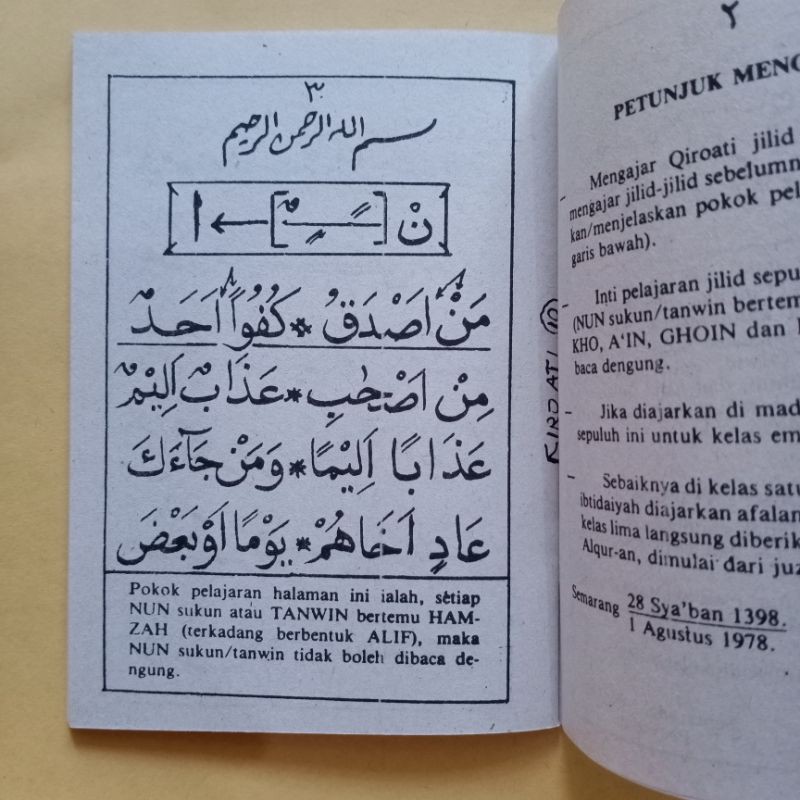 ٣
بسم الله الرحمن الرحيم
نْ [ ـًـٍـٌ ] ← ا
مَنْ اَصْدَقُ * كُفُوًا اَحَدٌ
مِنْ اَصْحٰبِ * عَذَابٌ اَلِيْمٌ
عَذَابًا اَلِيْمًا * وَمَنْ جَآءَكَ
عَادٍ اَخَاهُمْ * يَوْمًا اَوْبَعْضَ
Pokok pelajaran halaman ini ialah, setiap
NUN sukun atau TANWIN bertemu HAM-
ZAH (terkadang berbentuk ALIF), maka
NUN sukun/tanwin tidak boleh dibaca de-
ngung.
٢
PETUNJUK MENG
- Mengajar Qiroati jilid
mengajar jilid-jilid sebelumn
kan/menjelaskan pokok pel
garis bawah).
- Inti pelajaran jilid sepu
(NUN sukun/tanwin bertem
KHO, A'IN, GHOIN dan
baca dengung.
- Jika diajarkan di mad
sepuluh ini untuk kelas em
- Sebaiknya di kelas satu
ibtidaiyah diajarkan afalan
kelas lima langsung diberik
Alqur-an, dimulai dari juz
Semarang 28 Sya'ban 1398.
1 Agustus 1978.